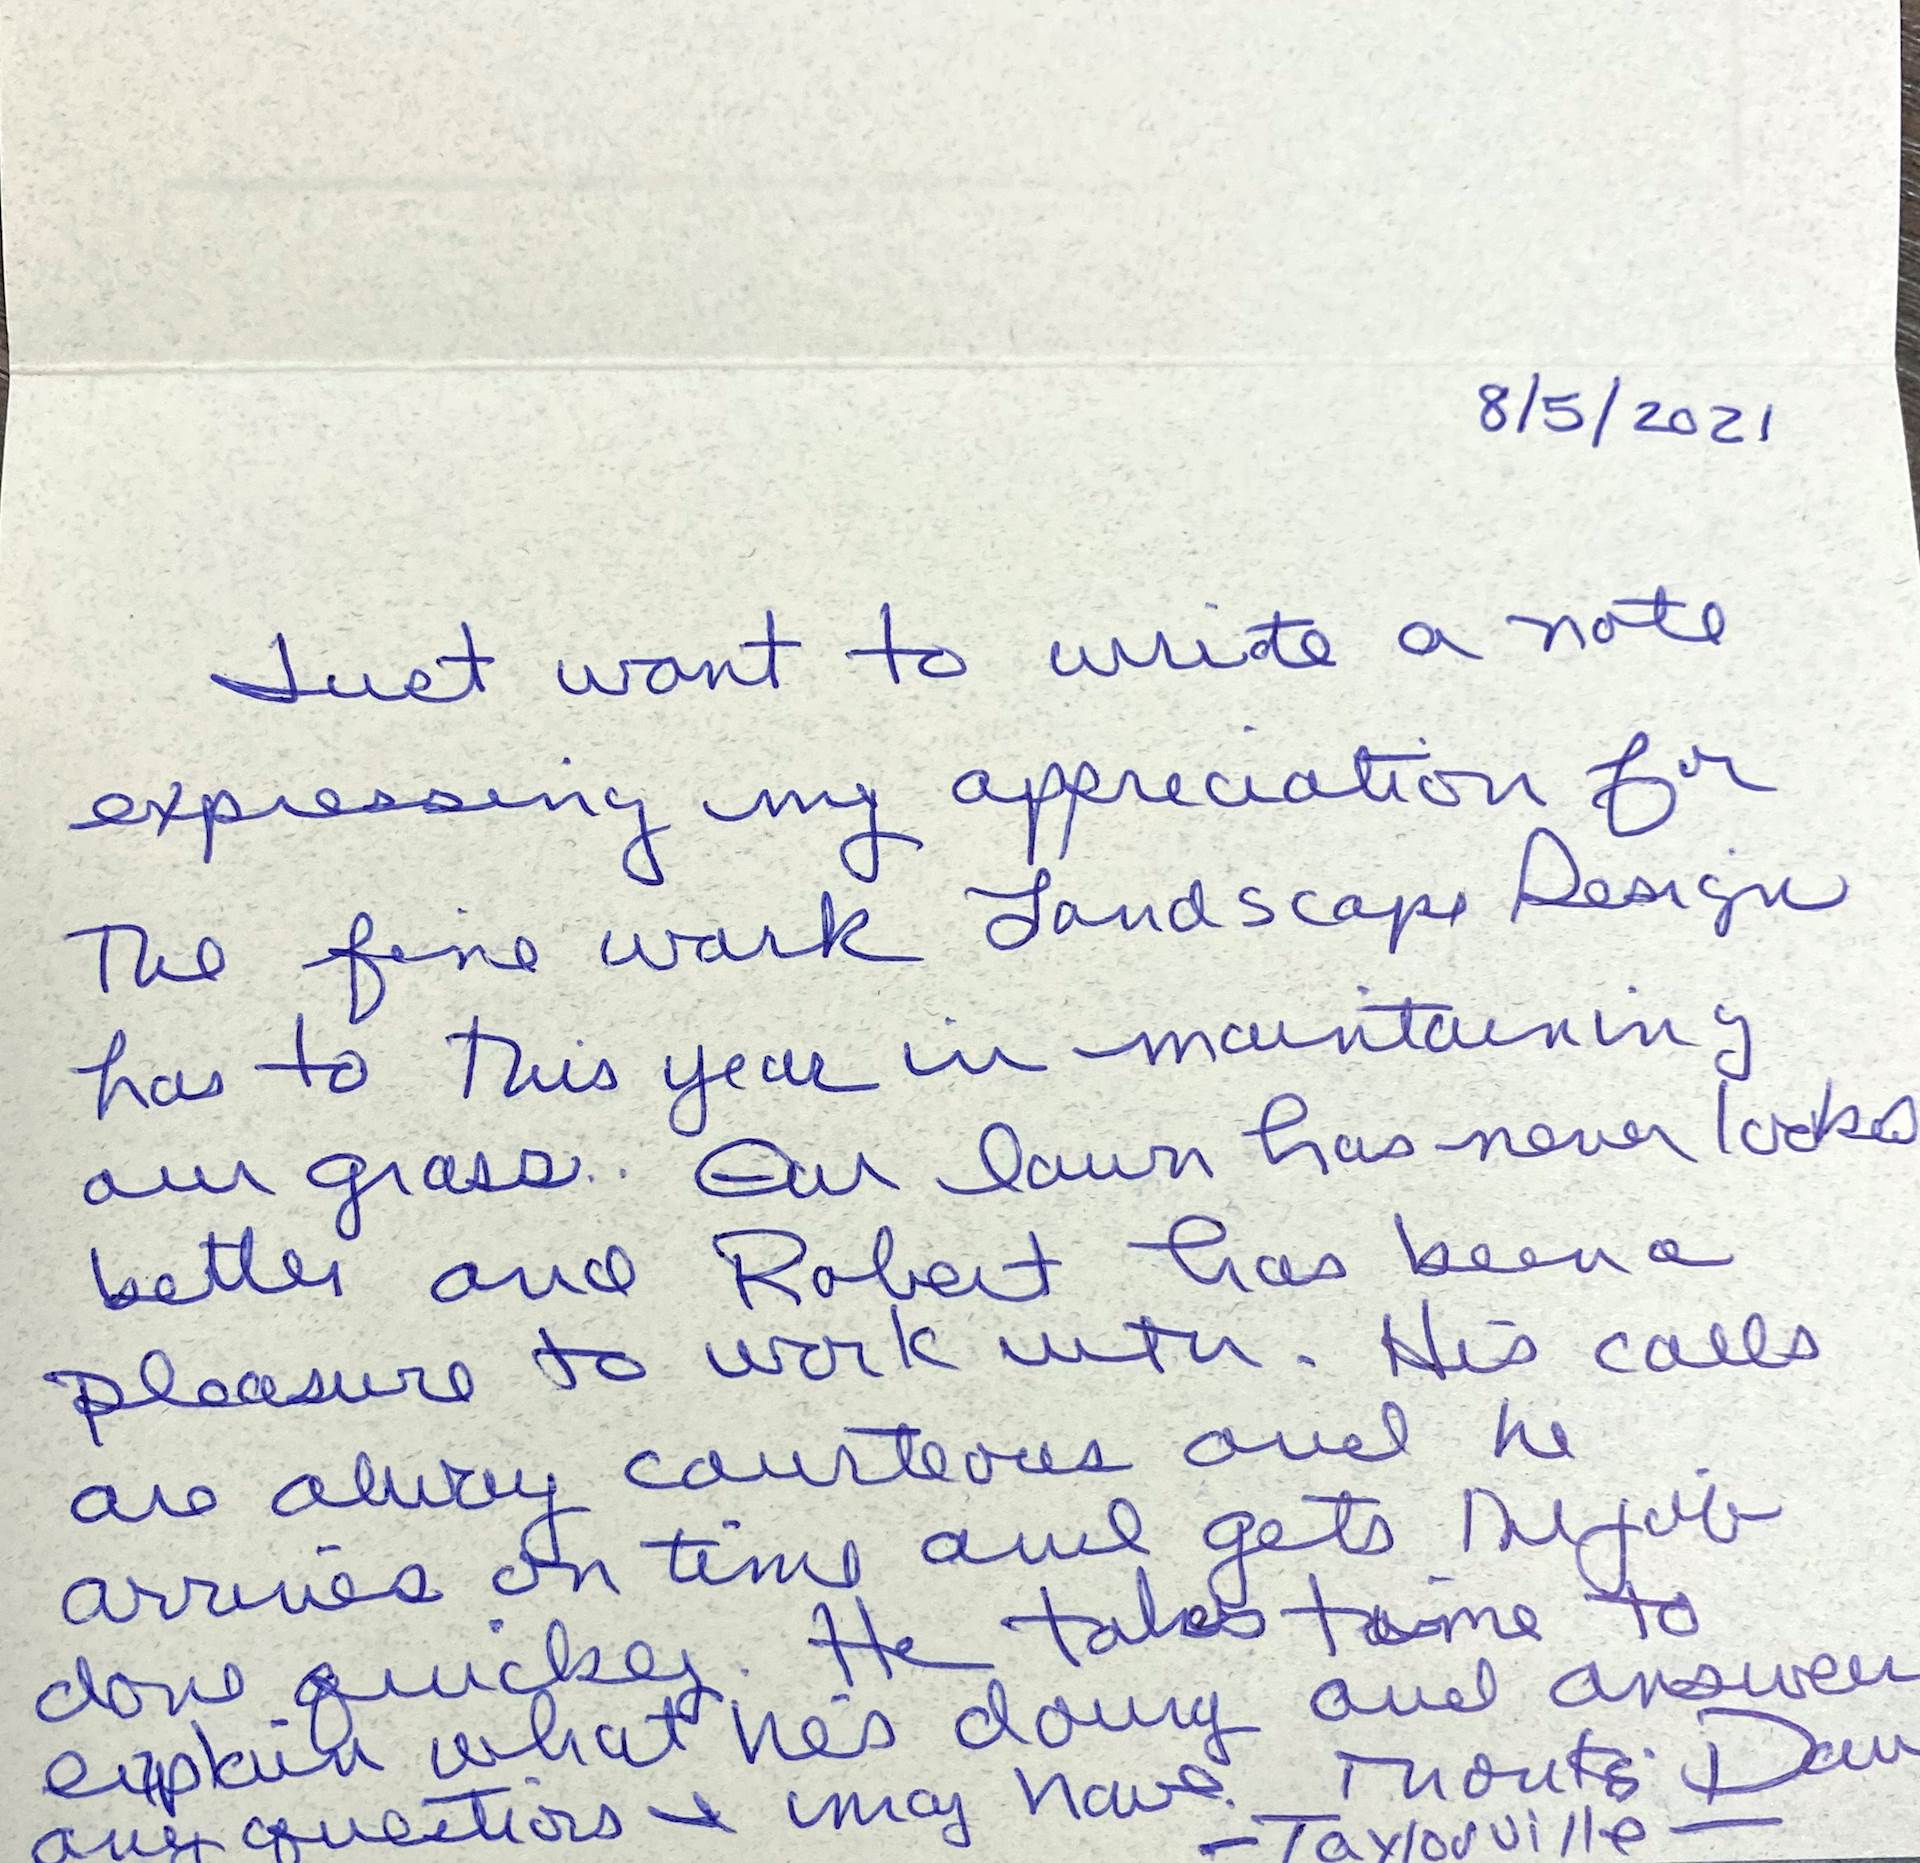 8/5/2021
Just want to write a note
expressing my appreciation for
The fine work Landscape Design
has to This year in maintaining
our grass.. Our lawn has never looks
better and Robert has been a
pleasure to work with. His calls
are alway courteous and he
arrives on time and gets The job
done quickey. He takes time to
explain what he's doing and answer
any questions I may have. Thanks Dan
- Taylorville -